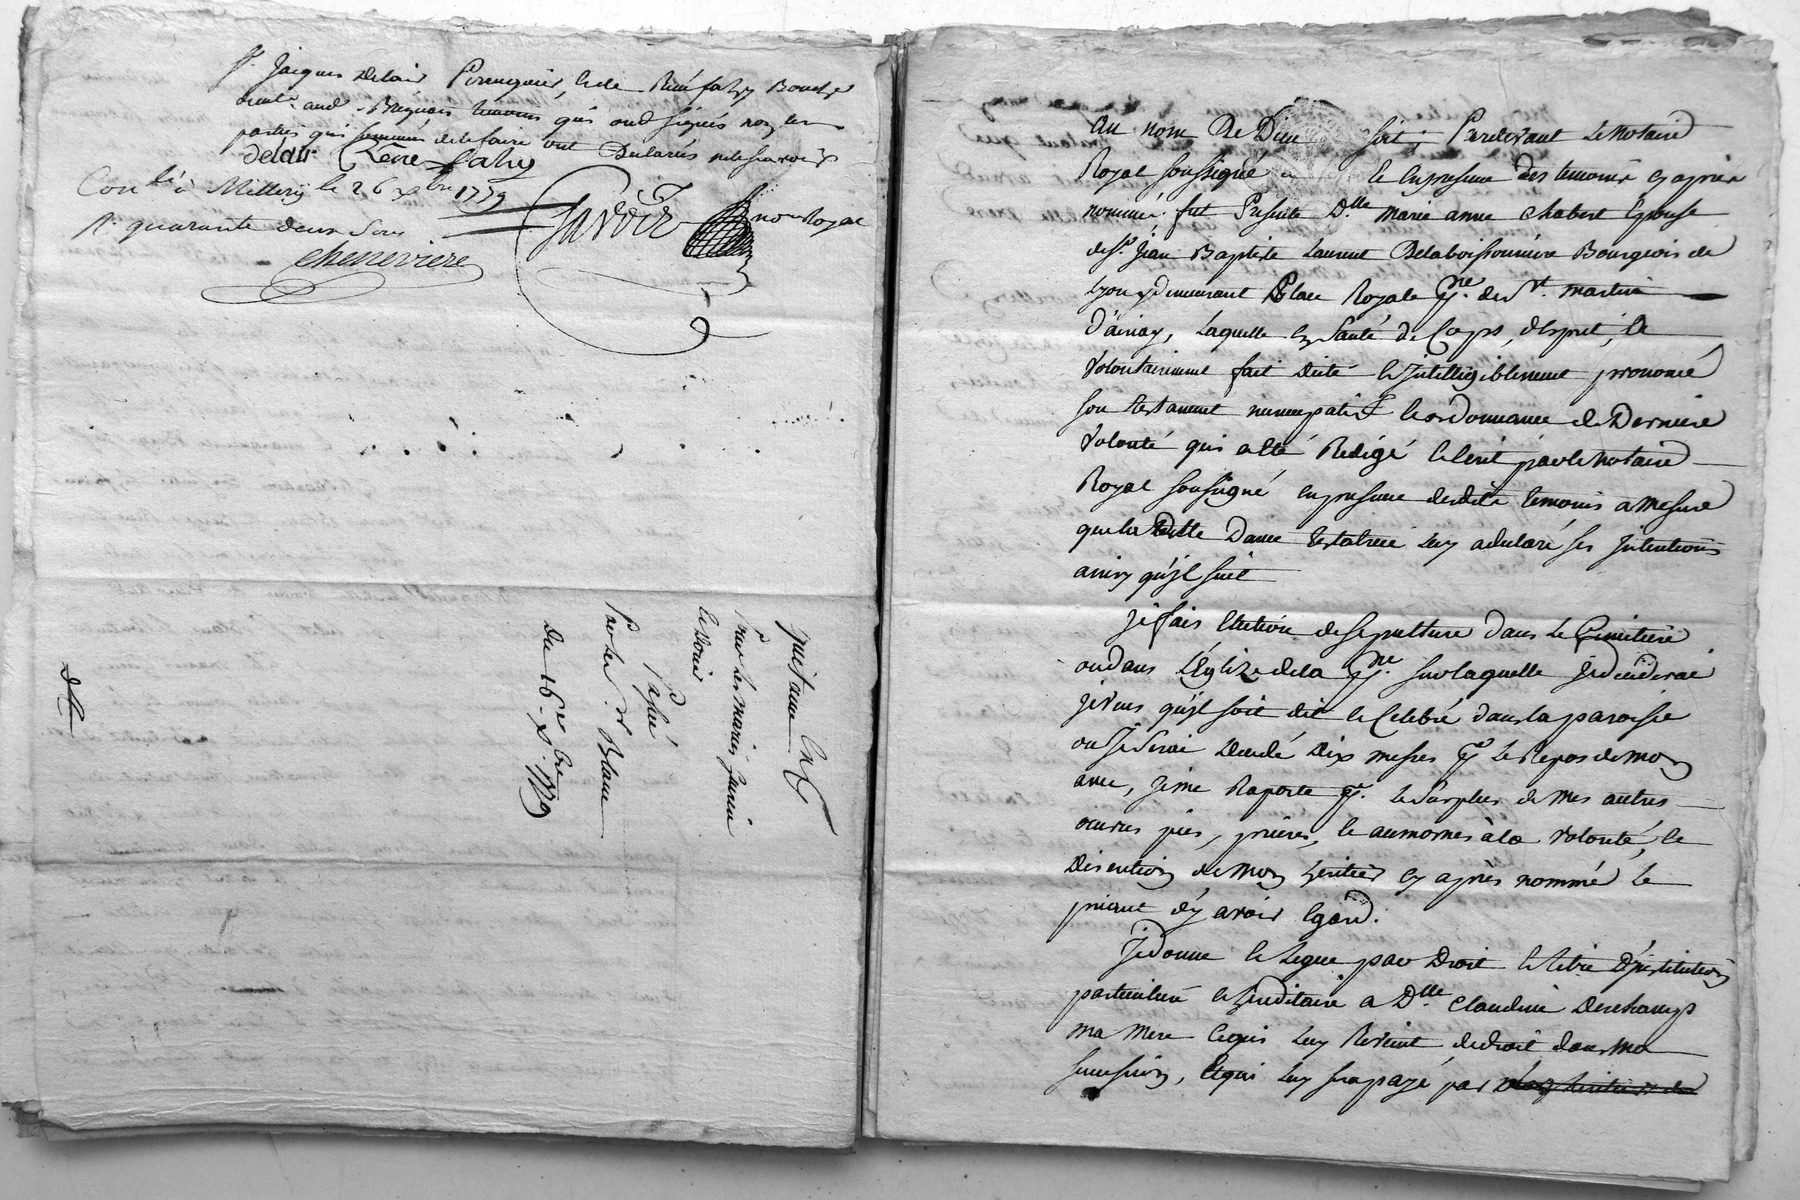 Sr. Jacques Delair Perruquier, et de René fahy Bouche
demt. aud. Brignais temoins qui ont signés non les
parties qui sommées de le faire ont declarés ne le sçavoir
Delair René fahy
Conlé. à Millery le 26 xbre 1779
R. quarante deux sous
cheneviere
Gavoir nore Royal
quittance en
Pour les mariez
et Voir
Passé
Par les Sr. Blanc
Du 16e. xbre. 1779
Au nom De Dieu soit; Pardevant Le Notaire
Royal soussigné et en presence des temoins cy après
nommés. fut Presente Dlle. marie anne chabert Epouse
de Sr. Jean Baptiste Laurent Delaboissonniere Bourgeois de
Lyon y demeurant Place Royale Psse. de St. martin
D'ainay, Laquelle en Santé de Corps, d'esprit, et
Volontairement fait dicté et Intelligiblement prononcé
son testament nuncupatif et ordonnance de Derniere
Volonté qui a Eté Redigé et Ecrit par le Notaire
Royal soussigné en presence desdits temoins a Mesure
que la ditte Dame testatrice luy a declaré ses Intentions
ainsy qu'il suit
Je fais Election de sepulture dans Le Cimetiere
ou dans L'Eglize de la Psse. sur laquelle je decederai
je veus qu'il soit dit et Celebré dans la paroisse
ou Je Serai Decedé Dix messes pr. Le Repos de Mon
ame, je me Raporte pr. le Surplus de Mes autres
œuvres pies, prieres, et aumornes à la volonté, et
Discretion de Mon heritier cy après nommé le
priant d'y avoir Egard.
Je donne et Legue par Droit et titre D'institution
particuliere et hereditaire a Dlle. Claudine Deschamps
ma Mere Ce qui Luy Revient de droit dans Ma
succession, Et qui Luy sera payé par